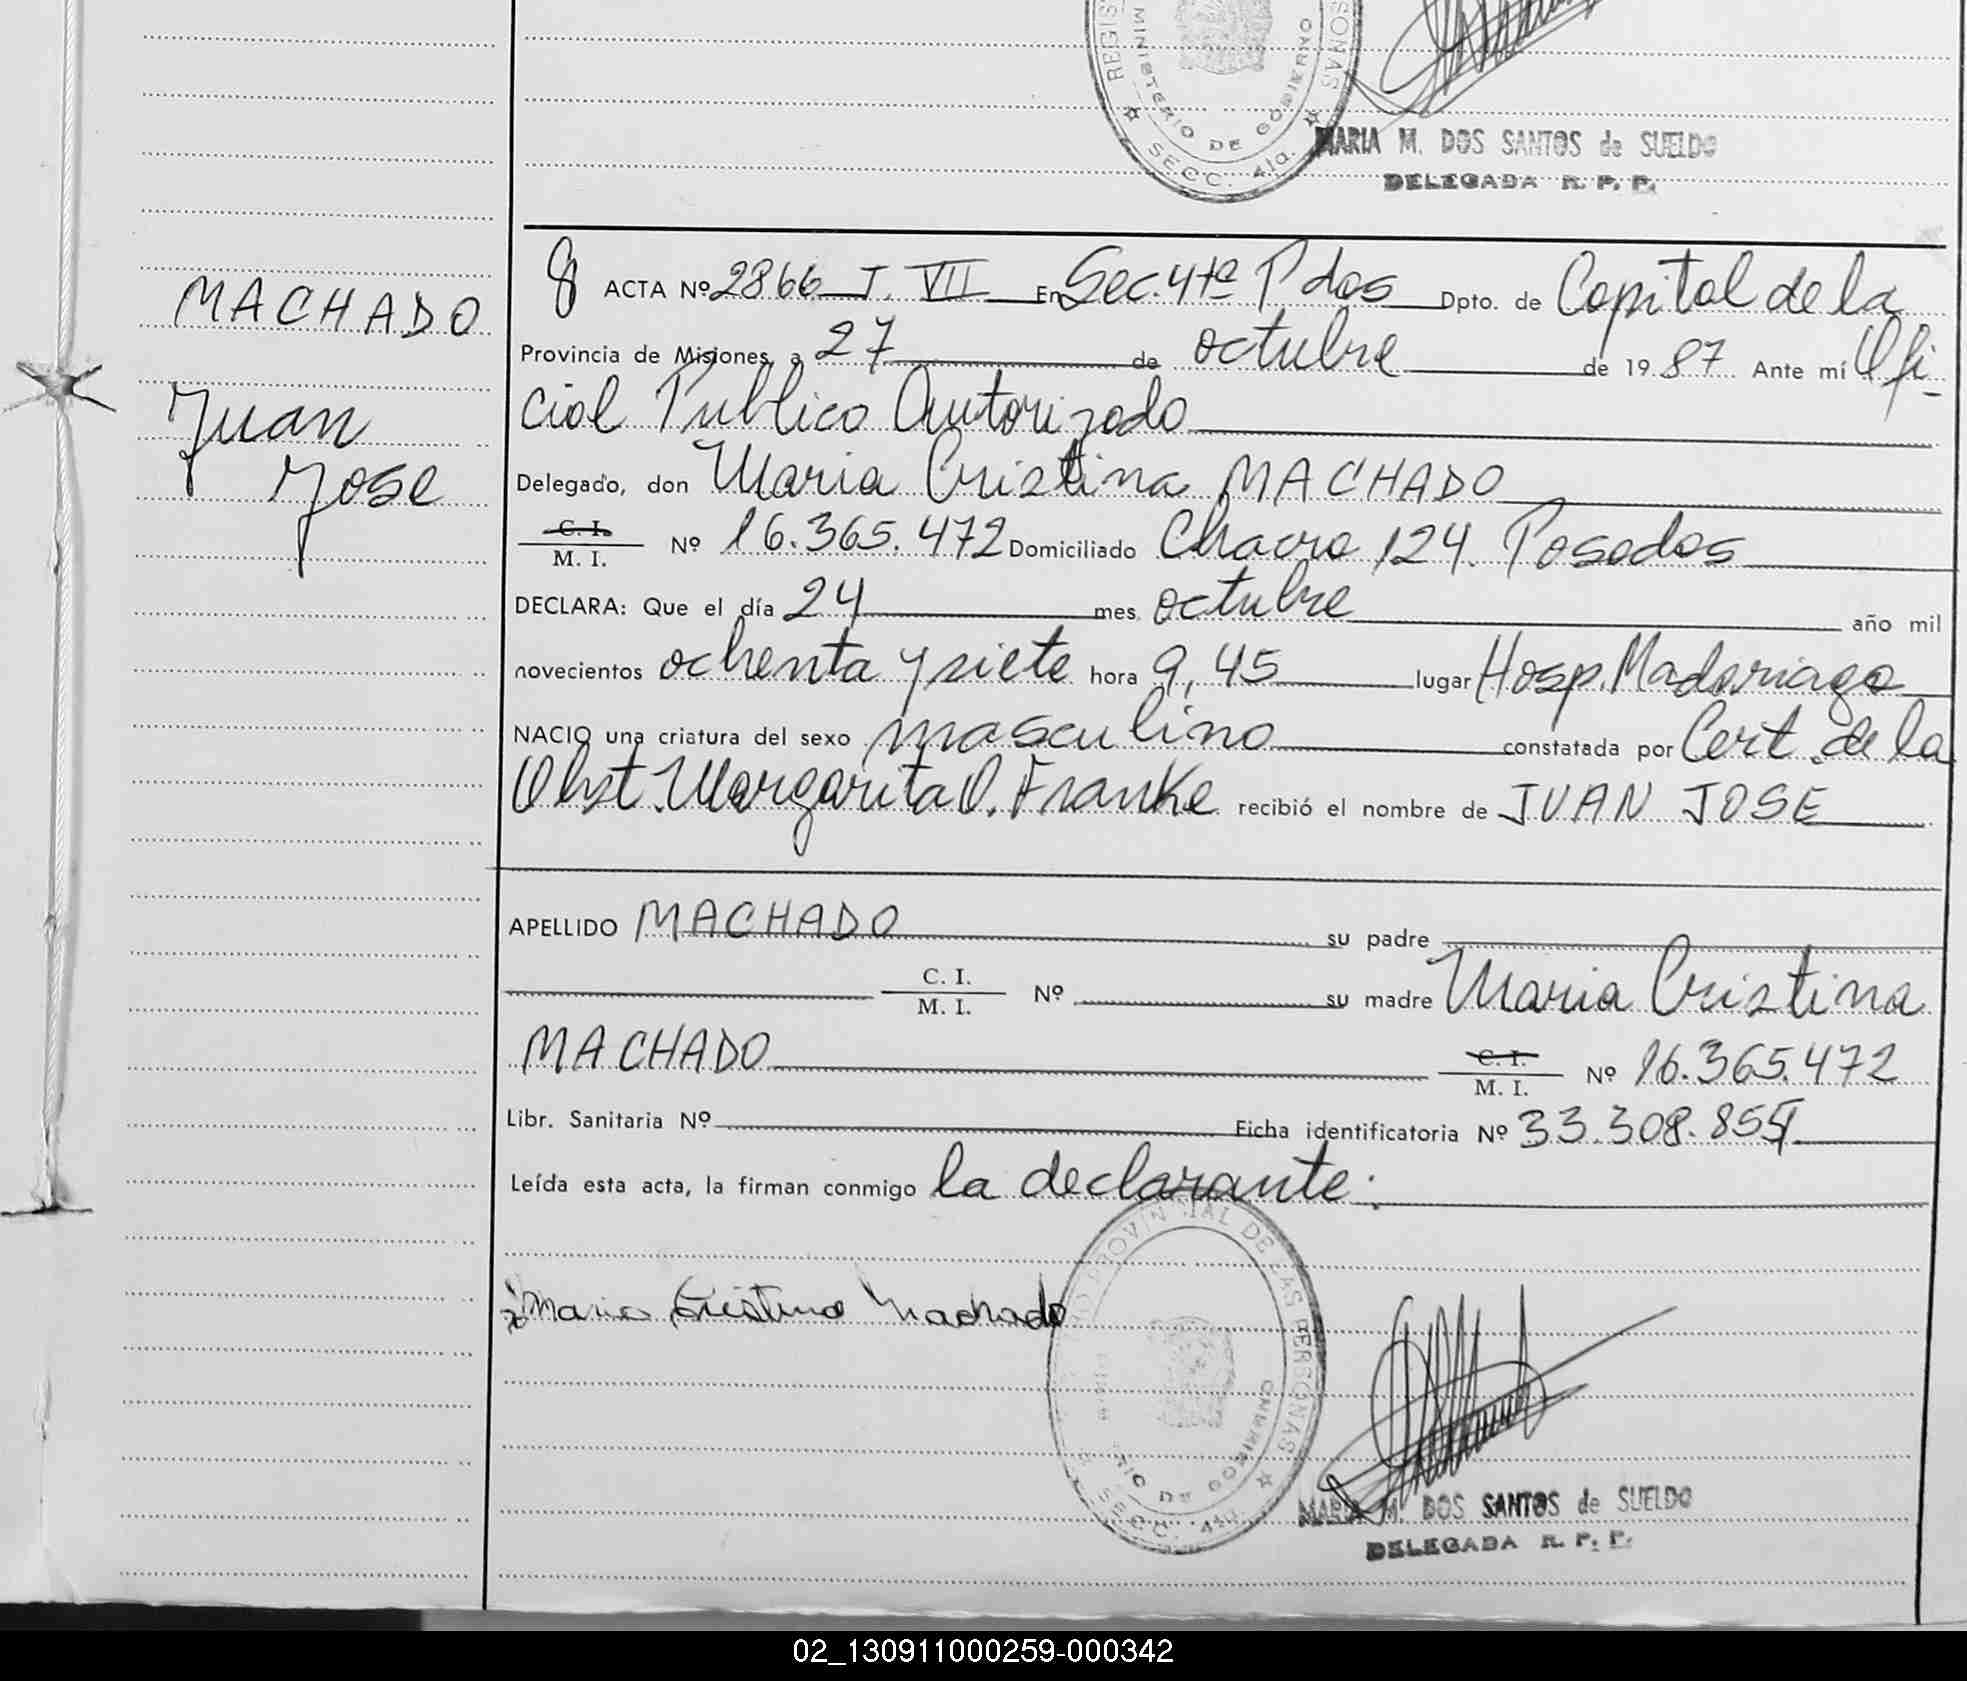 REGIS
SONAS
MINISTERIO DE GOBIERNO
SECC. 4ta.
MARIA M. DOS SANTOS de SUELDO
DELEGADA R. P. P.
MACHADO
Juan
Jose
8 ACTA Nº 2866 T. VII En Sec. 4ta Pdas Dpto. de Capital de la
Provincia de Misiones, a 27 de octubre de 1987 Ante mí Ofi-
cial Publico Autorizado
Delegado, don Maria Cristina MACHADO
C. I. / M. I. Nº 16.365.472 Domiciliado Chacra 124. Posadas
DECLARA: Que el día 24 mes octubre año mil
novecientos ochenta y siete hora 9,45 lugar Hosp. Madariaga
NACIO una criatura del sexo masculino constatada por Cert. de la
Obst. Margarita O. Franke recibió el nombre de JUAN JOSE
APELLIDO MACHADO su padre
C. I. / M. I. Nº su madre Maria Cristina
MACHADO C. I. / M. I. Nº 16.365.472
Libr. Sanitaria Nº Ficha identificatoria Nº 33.308.855
Leída esta acta, la firman conmigo la declarante.
Maria Cristina Machado
PROVINCIAL DE LAS PERSONAS
SECC. 4ta.
MARIA M. DOS SANTOS de SUELDO
DELEGADA R. P. P.
02_130911000259-000342